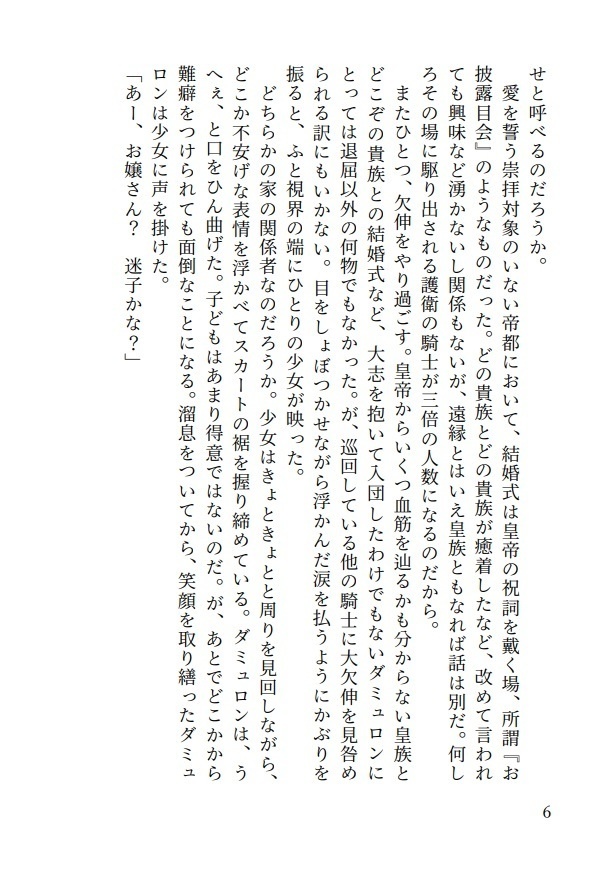 せと呼べるのだろうか。
　愛を誓う崇拝対象のいない帝都において、結婚式は皇帝の祝詞を戴く場、所謂『お
披露目会』のようなものだった。どの貴族とどの貴族が癒着したなど、改めて言われ
ても興味など湧かないし関係もないが、遠縁とはいえ皇族ともなれば話は別だ。何し
ろその場に駆り出される護衛の騎士が三倍の人数になるのだから。
　またひとつ、欠伸をやり過ごす。皇帝からいくつ血筋を辿るかも分からない皇族と
どこぞの貴族との結婚式など、大志を抱いて入団したわけでもないダミュロンに
とっては退屈以外の何物でもなかった。が、巡回している他の騎士に大欠伸を見咎め
られる訳にもいかない。目をしょぼつかせながら浮かんだ涙を払うようにかぶりを
振ると、ふと視界の端にひとりの少女が映った。
　どちらかの家の関係者なのだろうか。少女はきょときょとと周りを見回しながら、
どこか不安げな表情を浮かべてスカートの裾を握り締めている。ダミュロンは、う
へぇ、と口をひん曲げた。子どもはあまり得意ではないのだ。が、あとでどこかから
難癖をつけられても面倒なことになる。溜息をついてから、笑顔を取り繕ったダミュ
ロンは少女に声を掛けた。
「あー、お嬢さん？　迷子かな？」
6